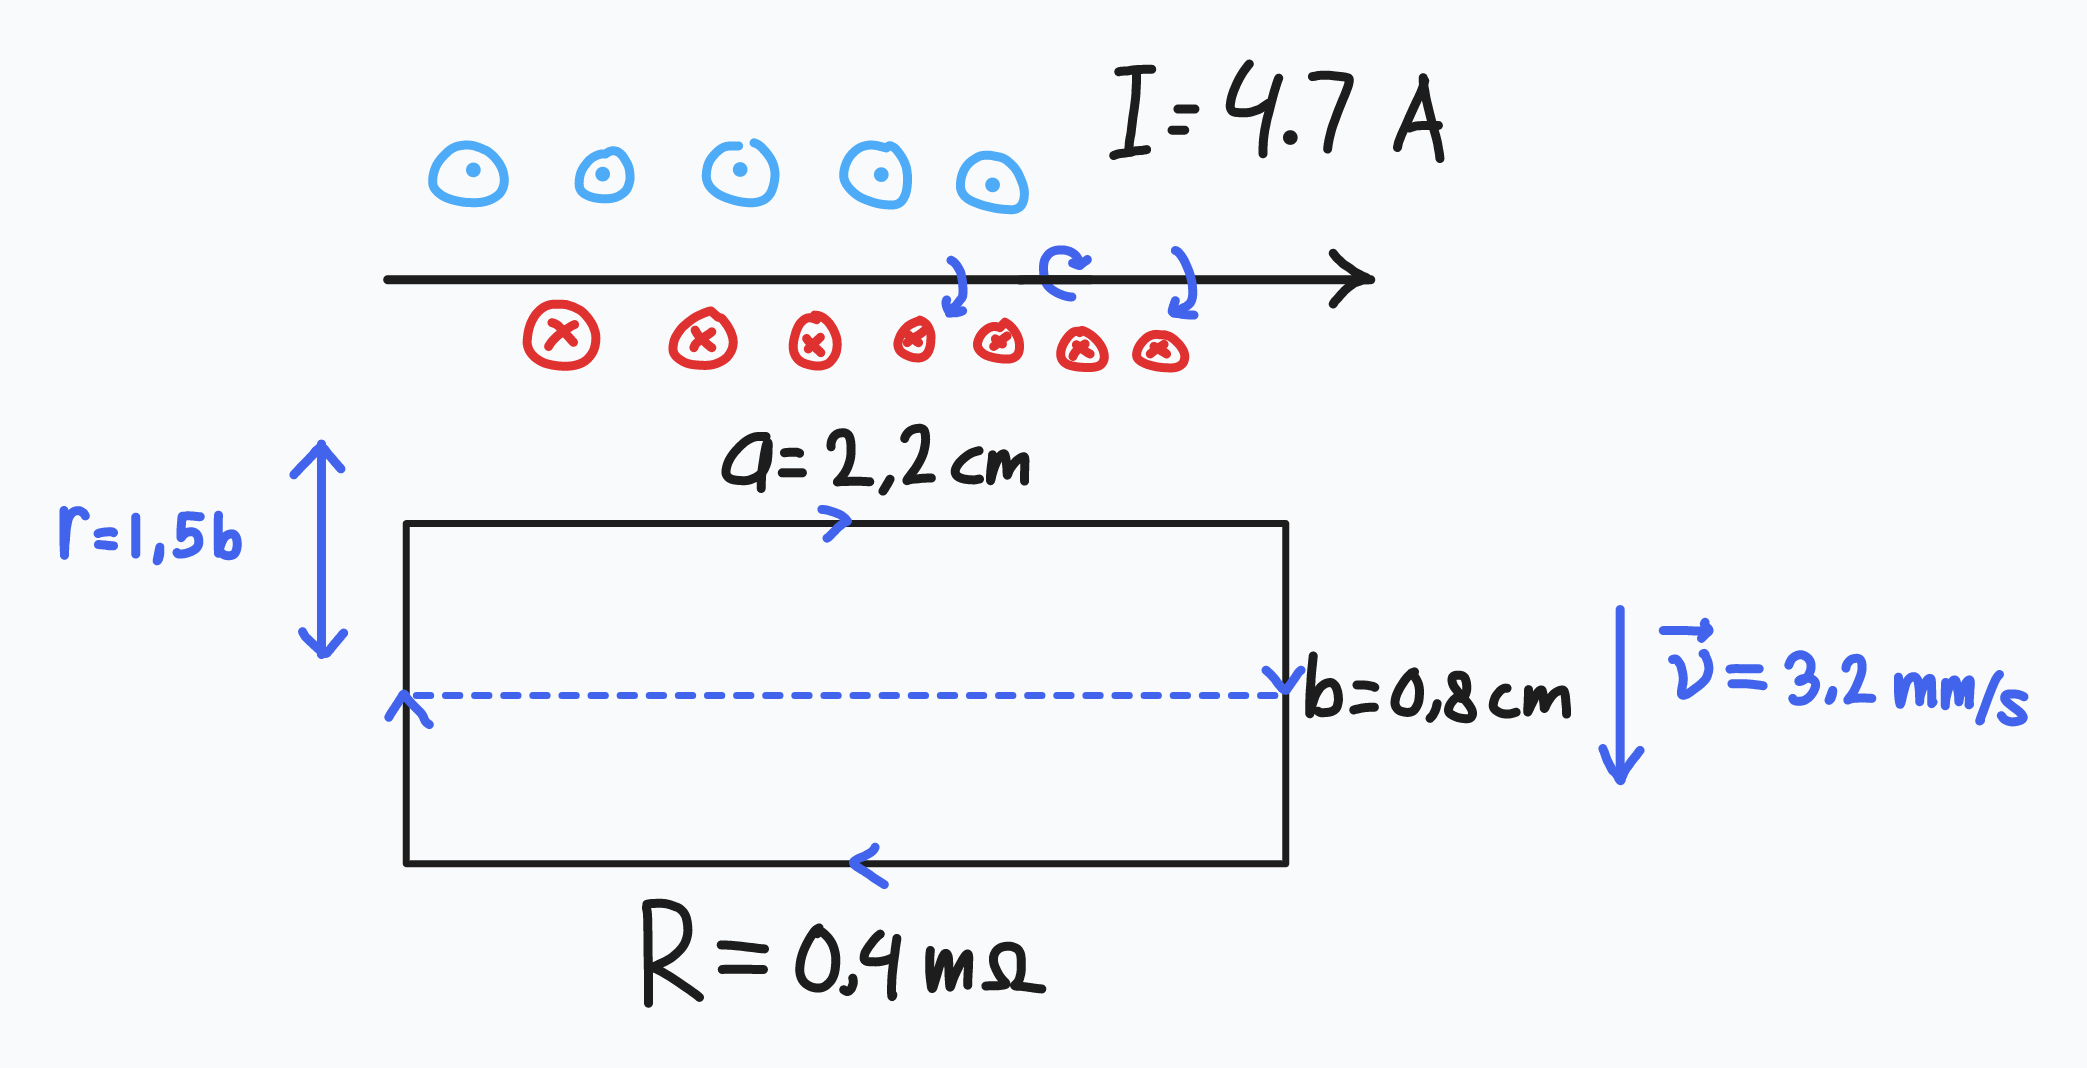 I = 4.7 A
a = 2,2 cm
r = 1,5 b
b = 0,8 cm
v⃗ = 3,2 mm/s
R = 0,4 mΩ